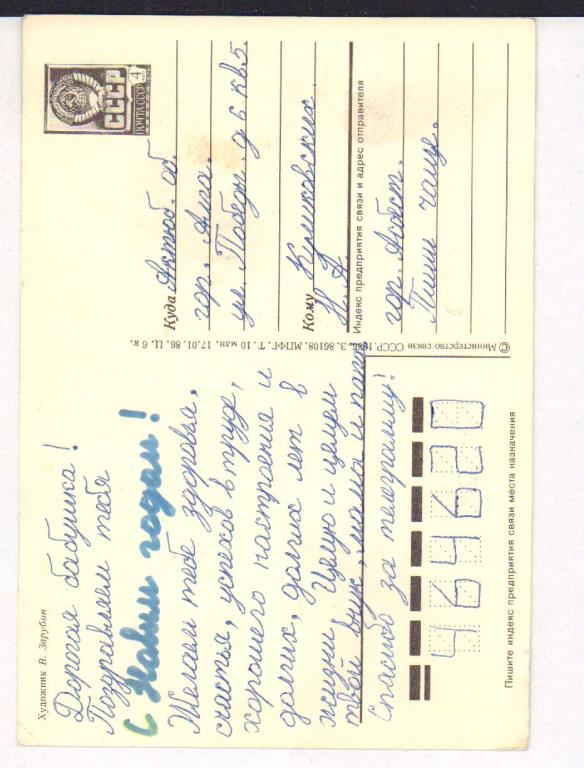 Художник В. Зарубин
Дорогая бабушка!
Поздравляем тебя
с Новым годом!
Желаем тебе здоровья,
счастья, успехов в труде,
хорошего настроения и
долгих, долгих лет в
жизни. Целую и целуем
твой внук, мама и папа
Спасибо за телеграмму!
© Министерство связи СССР. 1986. З. 86108. МПФГ. Т. 10 млн. 17.01. 86. Ц. 6 к.
ПОЧТА СССР
4
СССР
Куда Актюб. об.
гор. Алга.
ул. Победы д 6 кв 5.
Кому Куликовских
Н. А
Индекс предприятия связи и адрес отправителя
гор. Асбест.
Пиши чаще.
464620
Пишите индекс предприятия связи места назначения